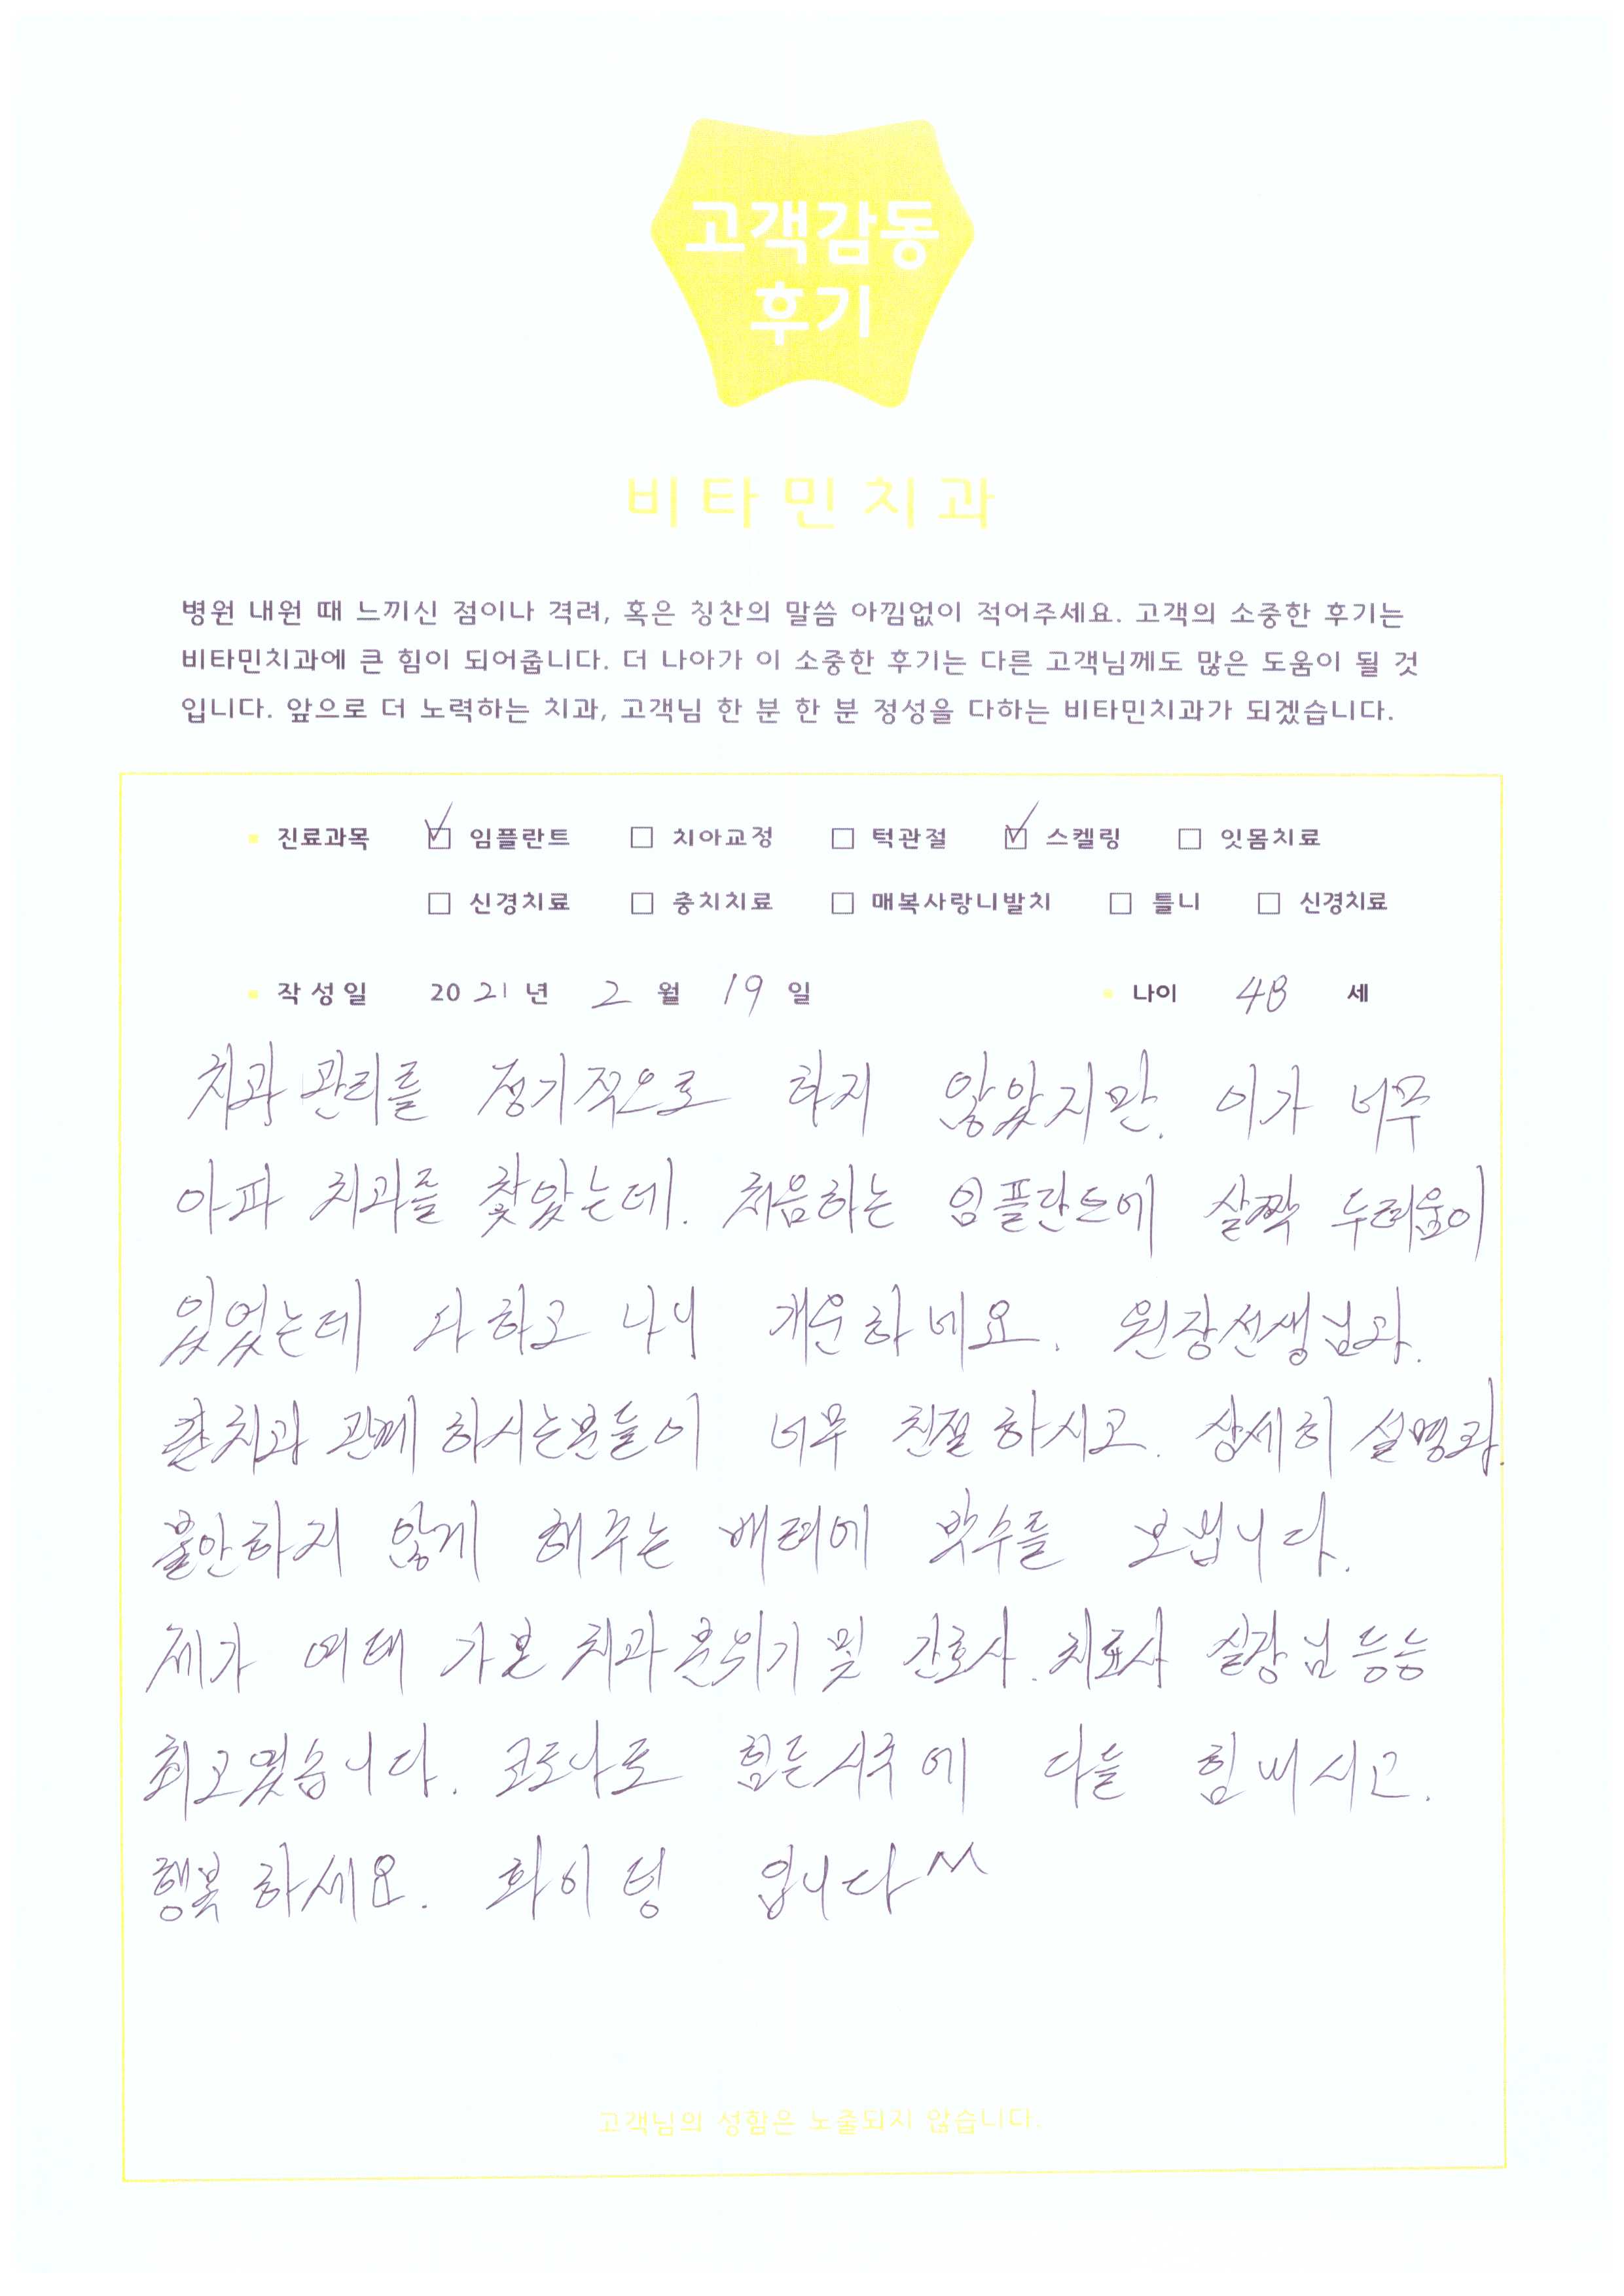 고객감동
후기
비타민치과
병원 내원 때 느끼신 점이나 격려, 혹은 칭찬의 말씀 아낌없이 적어주세요. 고객의 소중한 후기는
비타민치과에 큰 힘이 되어줍니다. 더 나아가 이 소중한 후기는 다른 고객님께도 많은 도움이 될 것
입니다. 앞으로 더 노력하는 치과, 고객님 한 분 한 분 정성을 다하는 비타민치과가 되겠습니다.
진료과목 임플란트 치아교정 턱관절 스켈링 잇몸치료
신경치료 충치치료 매복사랑니발치 틀니 신경치료
작성일 2021년 2월 19일 나이 48 세
치과관리를 정기적으로 하지 않았지만. 이가 너무
아파 치과를 찾았는데. 처음하는 임플란트에 살짝 두려움이
있었는데 하고 나니 개운하네요. 원장선생님과.
치과 관계 하시는분들이 너무 친절하시고. 상세히 설명과.
불안하지 않게 해주는 배려에 박수를 보냅니다.
제가 여태 가본 치과 분위기 및 간호사. 치료사 실장님 등등
최고였습니다. 코로나로 힘든시국에 다들 힘내시고.
행복하세요. 화이팅 입니다^^
고객님의 성함은 노출되지 않습니다.